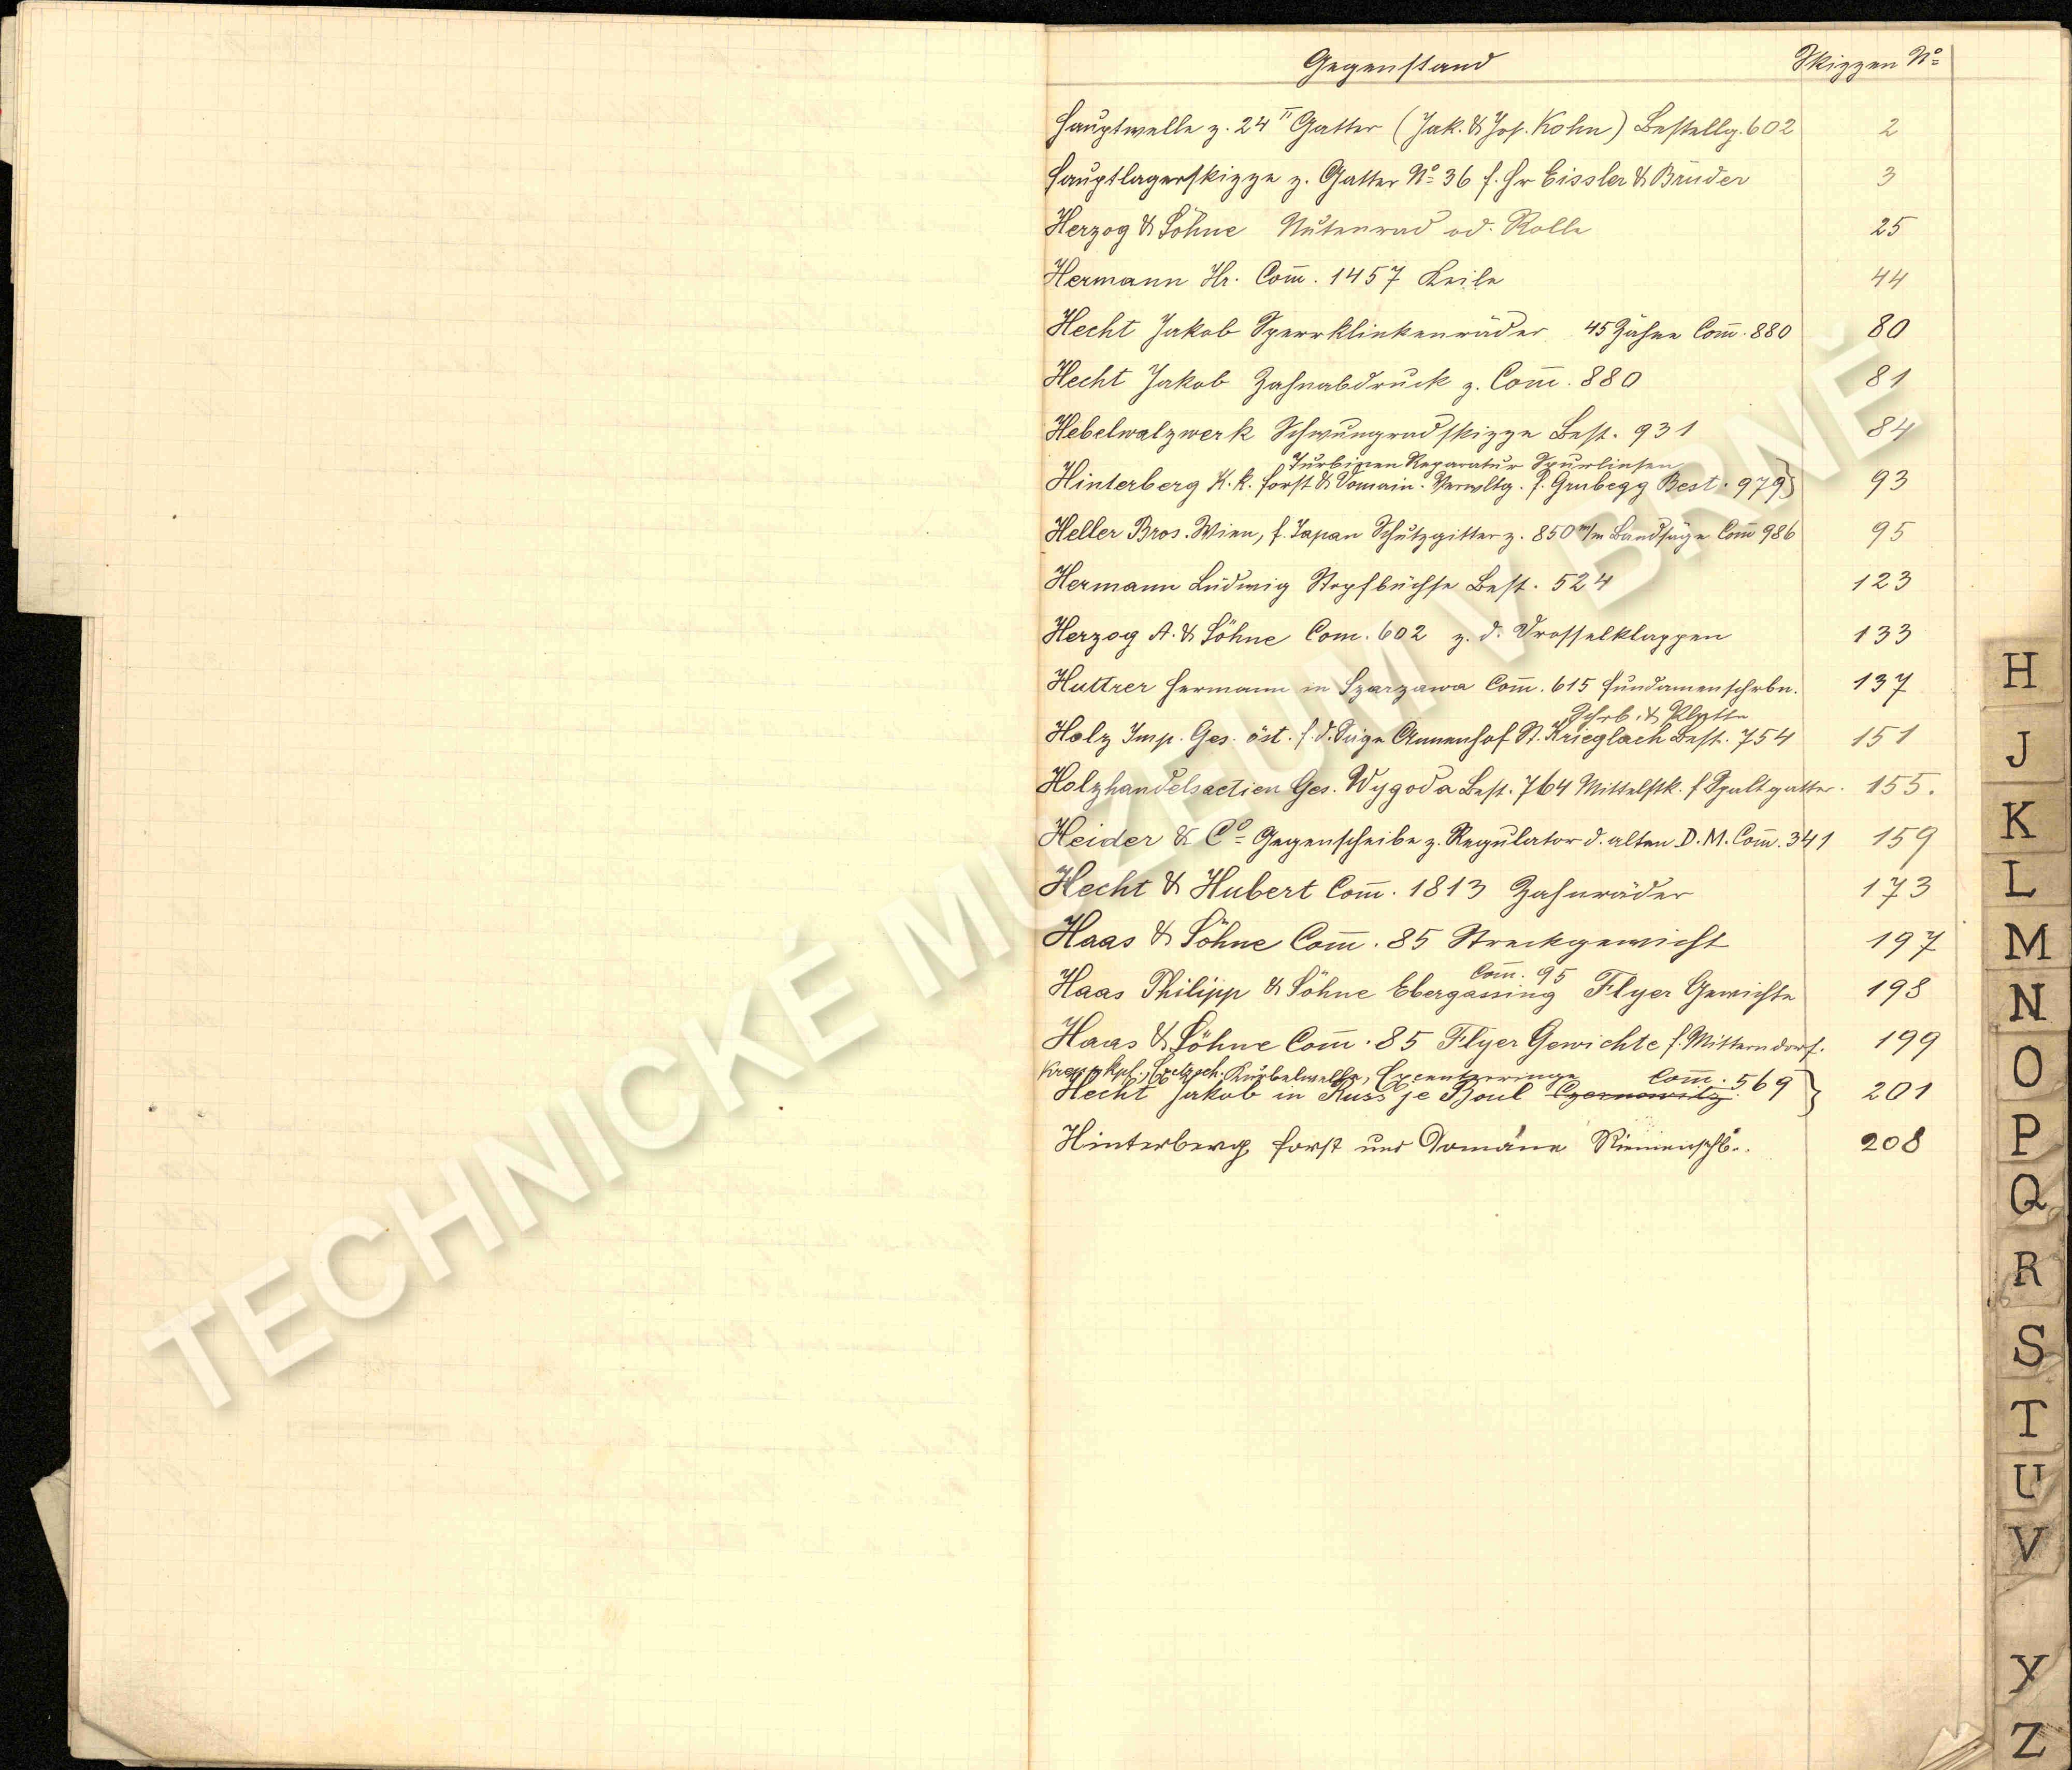 Gegenstand Skizzen No
Hauptwelle z. 24" Gatter (Jak. & Jos. Kohn) Bestellg. 602 2
Hauptlagerskizze z. Gatter No 36 f. Hr Eissler & Brüder 3
Herzog & Söhne Nutenrad od. Rolle 25
Hermann Hr. Com̅. 1457 Keile 44
Hecht Jakob Sperrklinkenräder 45 Zähne Com̅. 880 80
Hecht Jakob Zahnabdruck z. Com̅. 880 81
Hebelwalzwerk Schwungradskizze Best. 931 84
Turbinen Reparatur Spurlinsen
Hinterberg K. k. Forst & Domain. Verwltg. f. Grubegg Best. 979} 93
Heller Bros. Wien, f. Japan Schutzgitter z. 850 m/m Bandsäge Com̅ 986 95
Hermann Ludwig Stopfbüchse Best. 524 123
Herzog A. & Söhne Com. 602 z. d. Drosselklappen 133
Huttrer Hermann in Szarzawa Com̅. 615 Fundamenschrbn. 137
Schrb. & Platte
Holz Imp. Ges. öst. f. d. Säge Annenhof St. Krieglach Best. 754 151
Holzhandelsactien Ges. Wygoda Best. 764 Mittelstk. f Spaltgatter. 155.
Heider & Co Gegenscheibe z. Regulator d. alten D. M. Com̅. 341 159
Hecht & Hubert Com̅. 1813 Zahnräder 173
Haas & Söhne Com̅. 85 Streckgewicht 197
Com̅. 95
Haas Philipp & Söhne Ebergassing Flyer Gewichte 198
Haas & Söhne Com̅. 85 Flyer Gewichte f. Mitterndorf. 199
Kurbelwelle, Excenterringe Com̅. 569
Hecht Jakob in Russ je Boul Czernowitz } 201
Hinterberg Forst und Domäne Riemensch. 208
H
J
K
L
M
N
O
P
Q
R
S
T
U
V
X
Z
TECHNICKÉ MUZEUM V BRNĚ